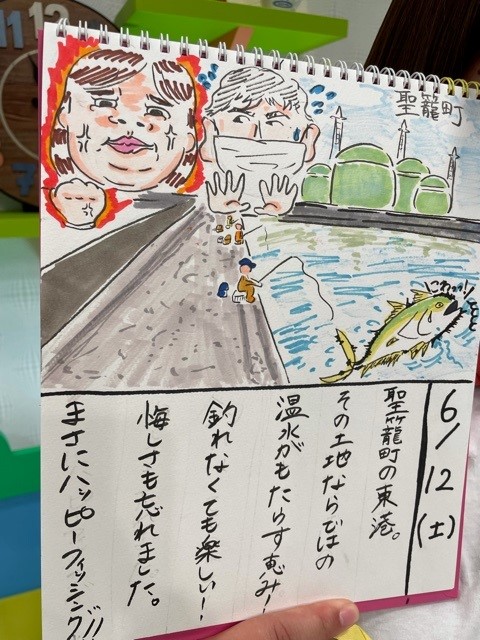 12
聖籠町
にわっ!!
6/12(土)
聖籠町の東港。
その土地ならではの
温水がもたらす恵み!
釣れなくても楽しい!
悔しさも忘れました。
まさにハッピーフィッシング!!